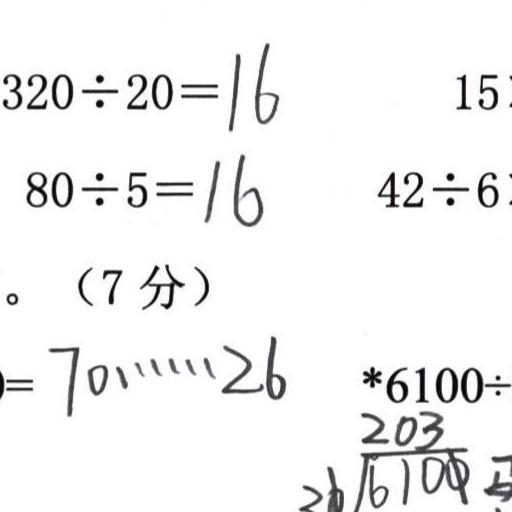 320÷20=16 15
80÷5=16 42÷6
。（7分）
= 70……26 *6100÷
203
6100